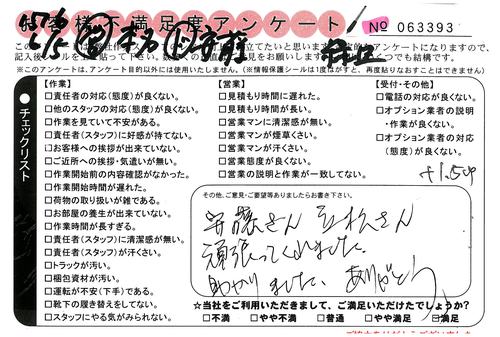 お客様不満足度アンケート
No 063393
※このアンケートは、アンケート目的以外には使用いたしません。(※情報保護シールは1度はがすと、再度貼りなおすことはできません)
チェックリスト
【作業】
□責任者の対応(態度)が良くない。
□他のスタッフの対応(態度)が良くない。
□作業を見ていて不安がある。
□責任者(スタッフ)に好感が持てない。
□お客様への挨拶が出来ていない。
□ご近所への挨拶・気遣いが無い。
□作業開始前の内容確認がなかった。
□作業開始時間が遅れた。
□荷物の取り扱いが雑である。
□お部屋の養生が出来ていない。
□作業時間が長すぎる。
□責任者(スタッフ)に清潔感が無い。
□責任者(スタッフ)が汗くさい。
□トラックが汚い。
□梱包資材が汚い。
□運転が不安(下手)である。
□靴下の履き替えをしてない。
□スタッフにやる気がみられない。
【営業】
□見積もり時間に遅れた。
□見積もり時間が長い。
□営業マンに清潔感が無い。
□営業マンが煙草くさい。
□営業マンが汗くさい。
□営業態度が良くない。
□営業の説明と作業が一致してない。
【受付・その他】
□電話の対応が良くない。
□オプション業者の説明
・作業が良くない。
□オプション業者の対応
(態度)が良くない。
+1.5
その他、ご意見・ご要望等ありましたらお書き下さい。
さん さん
頑張ってくれました。
助かりました。ありがとう
☆当社をご利用いただきまして、ご満足いただけたでしょうか?
□不満 □やや不満 □普通 □やや満足 □満足